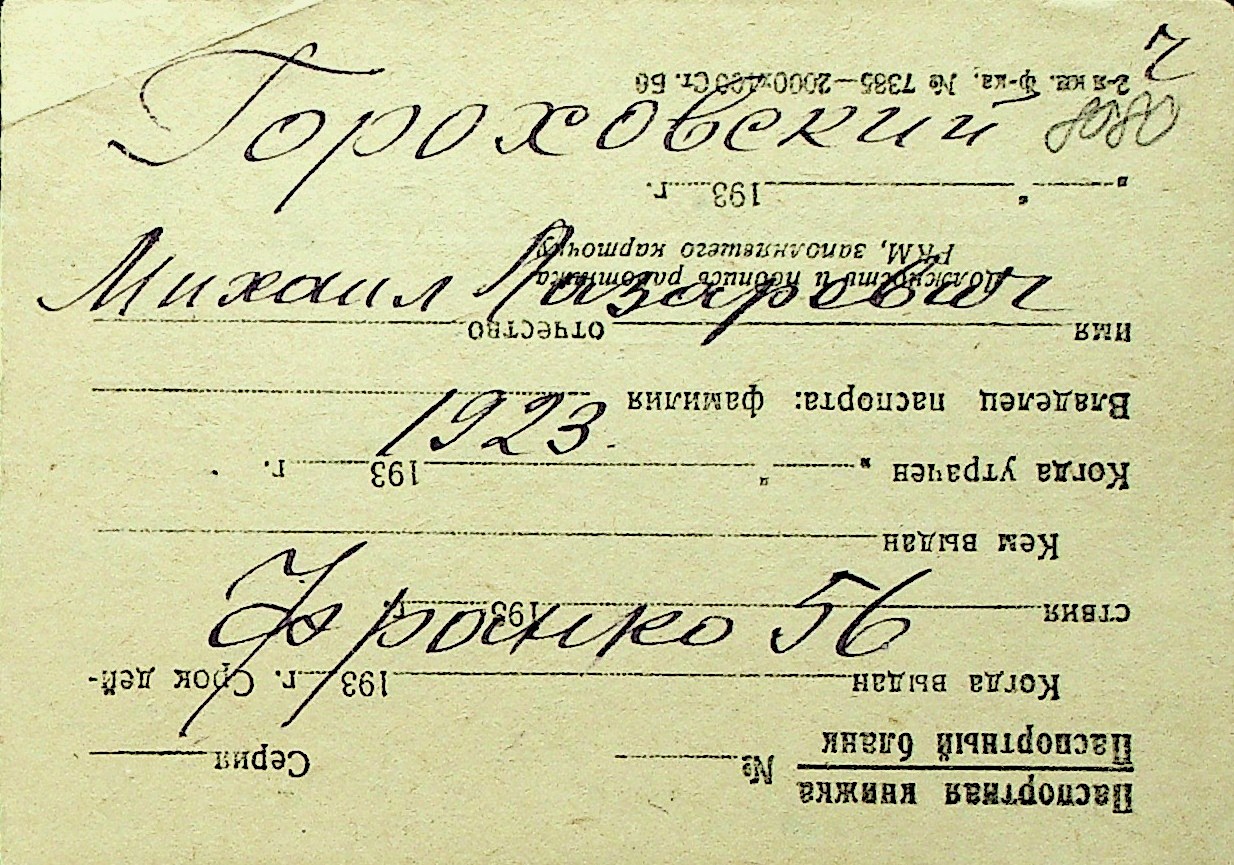 Гороховский
Михаил Лазаревич
1923
Франко 56
Паспортная книжка
Паспортный бланк
№ Серия
Когда выдан 193 г. Срок дей-
ствия 193 г.
Кем выдан
Когда утрачен „ " 193 г.
Владелец паспорта: фамилия
имя отчество
Должность и подпись работника
РКМ, заполнявшего карточку
„ " 193 г.
2-я кн. ф-ка, № 7385—2000×100 Ст. Б6